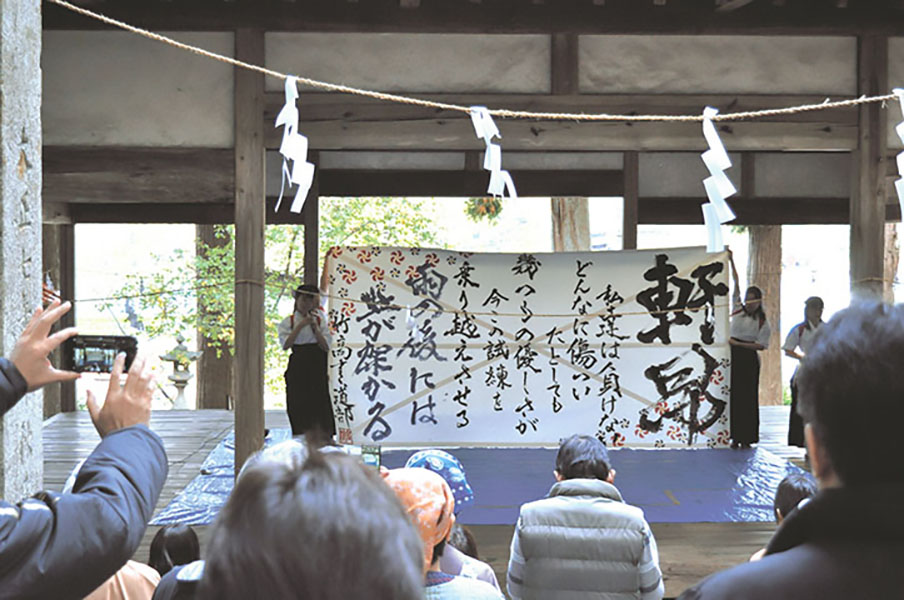 軒昂
私達は負けない
どんなに傷つい
たとしても
幾つもの優しさが
今この試練を
乗り越えさせる
雨の後には
虹が架かる